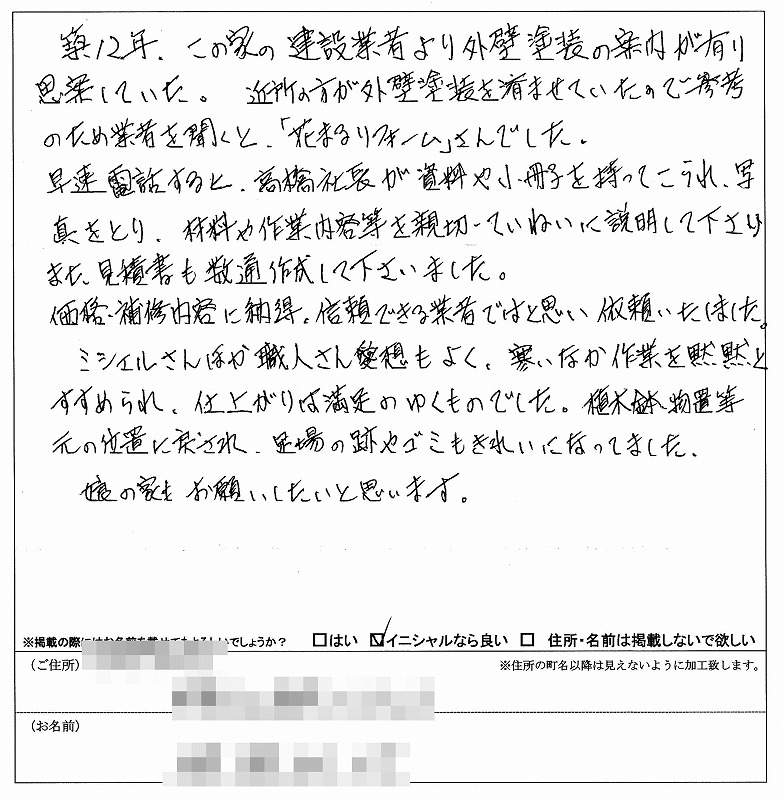 築12年、この家の建設業者より外壁塗装の案内が有り
思案していた。 近所の方が外壁塗装を済ませていたのでご参考
のため業者を聞くと、「花まるリフォーム」さんでした。
早速電話すると、高橋社長が資料や小冊子を持ってこられ、写
真をとり、材料や作業内容等を親切ていねいに説明して下さり
また、見積書も数通作成して下さいました。
価格・補修内容に納得。信頼できる業者ではと思い依頼いたしました。
ミシェルさんほか職人さん愛想もよく、寒いなか作業を黙黙と
すすめられ、仕上がりは満足のゆくものでした。植木鉢、物置等
元の位置に戻され、足場の跡やゴミもきれいになってました。
娘の家もお願いしたいと思います。
※掲載の際にはお名前を載せてもよろしいでしょうか? □はい ☑イニシャルなら良い □ 住所・名前は掲載しないで欲しい
(ご住所) ※住所の町名以降は見えないように加工致します。
(お名前)